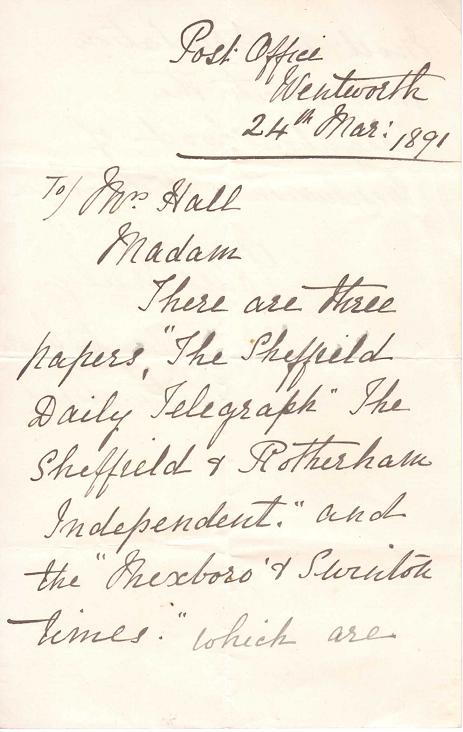 Post Office
Wentworth
24th Mar: 1891
To/ Mrs Hall
Madam
There are three
papers, "The Sheffield
Daily Telegraph" The
Sheffield & Rotherham
Independent." and
the "Mexboro' & Swinton
Times." which are